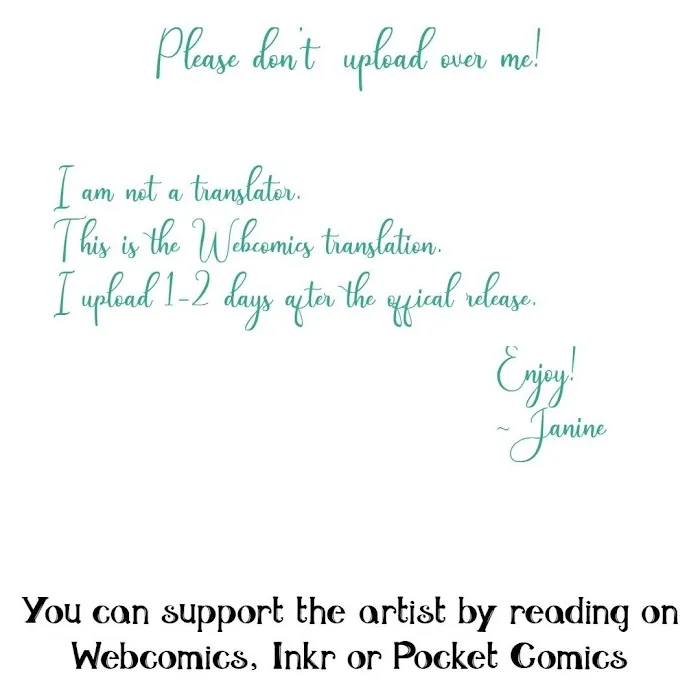 Please don't upload over me!
I am not a translator.
This is the Webcomics translation.
I upload 1-2 days after the offical release.
Enjoy!
~ Janine
You can support the artist by reading on
Webcomics, Inkr or Pocket Comics